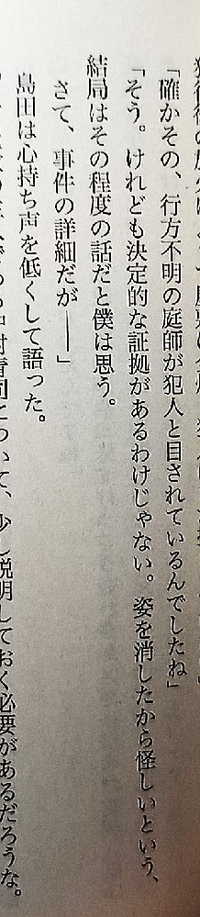 「確かその、行方不明の庭師が犯人と目されているんでしたね」
「そう。けれども決定的な証拠があるわけじゃない。姿を消したから怪しいという、
結局はその程度の話だと僕は思う。
さて、事件の詳細だが――」
島田は心持ち声を低くして語った。
青司について、少し説明しておく必要があるだろうな。